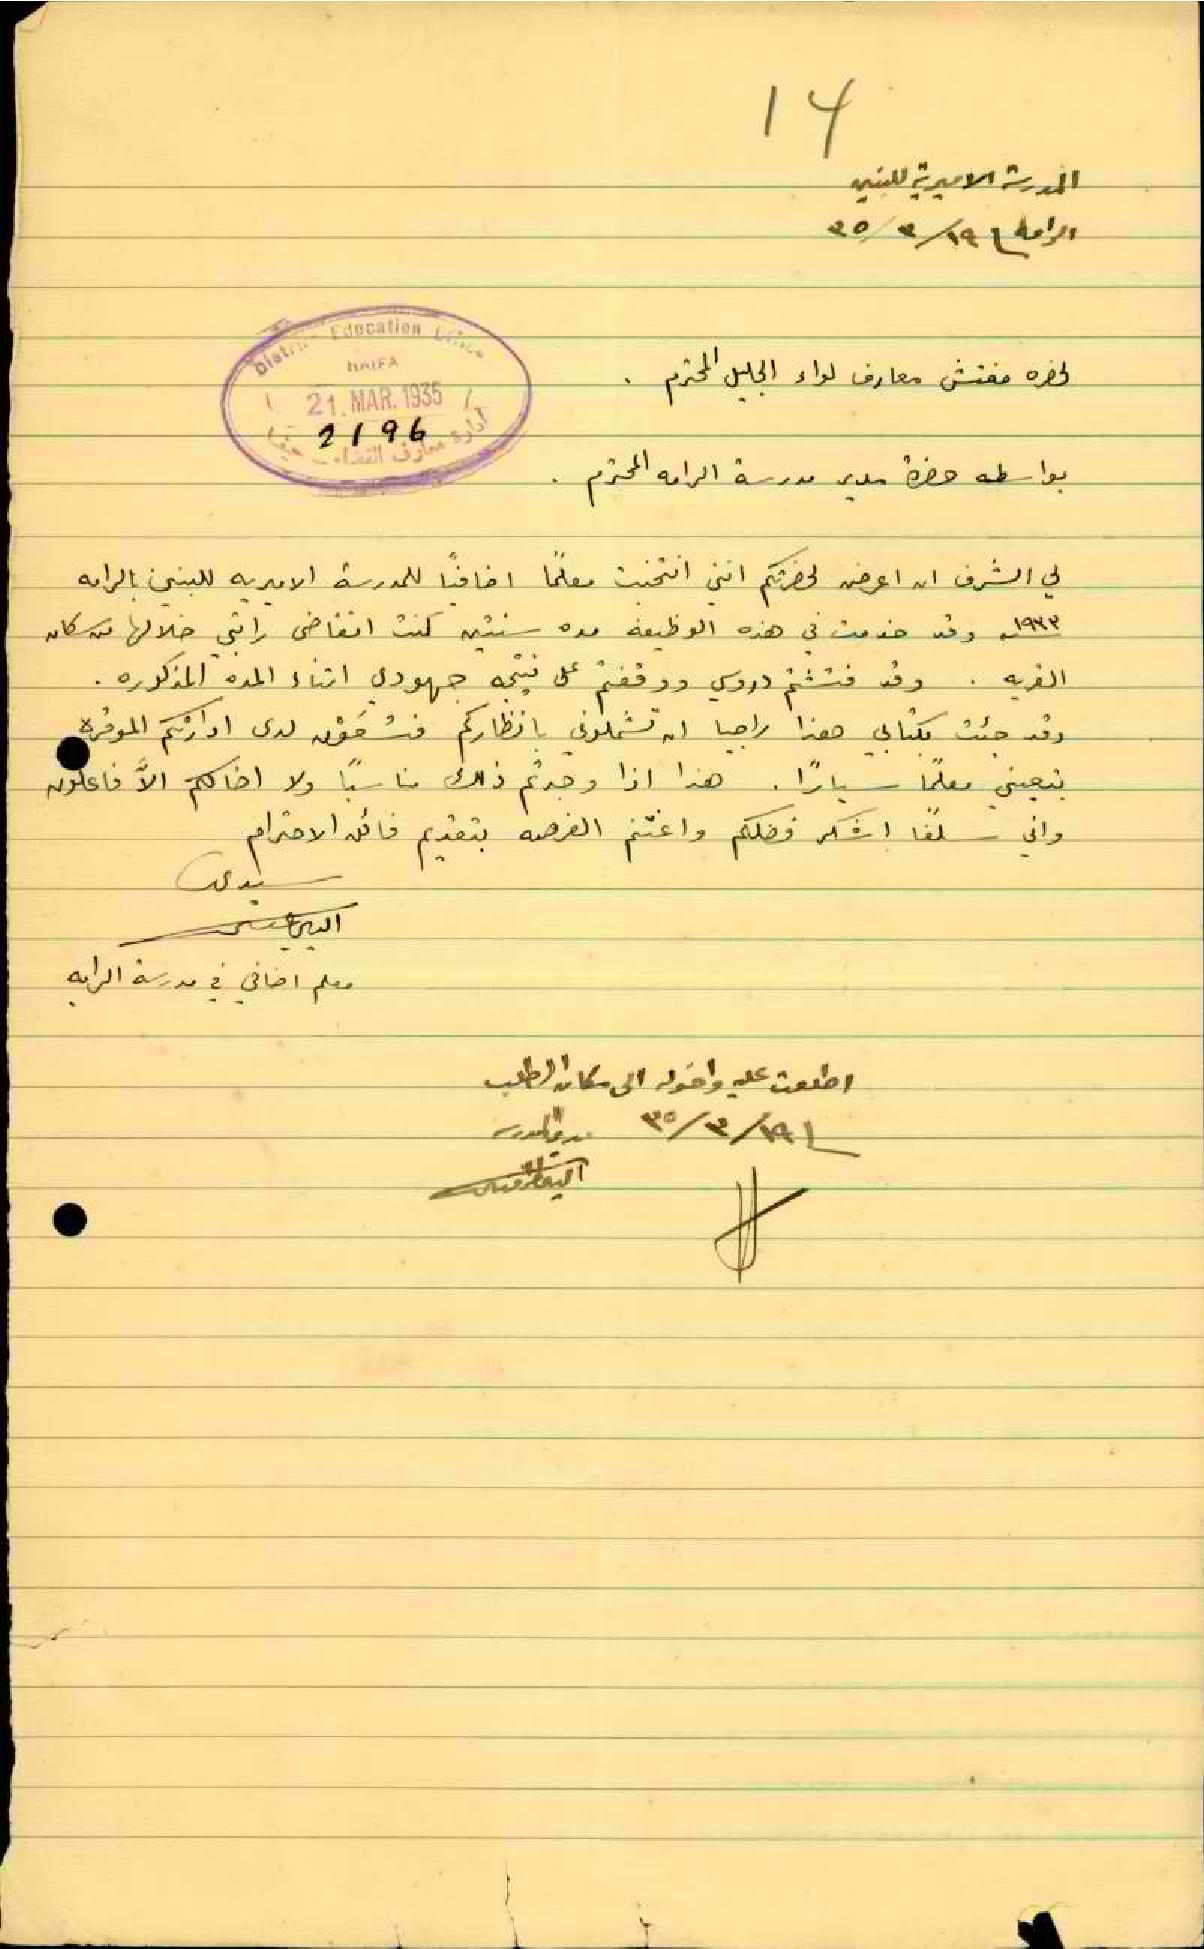 14
المدرسة الاميرية للبنين
الرامه ١٩/٣/٣٥
District Education Office
HAIFA
21. MAR. 1935
2196
ادارة معارف القضاء - حيفا
لحضره مفتش معارف لواء الجليل المحترم .
بواسطه حضرة مدير مدرسة الرامه المحترم .
لي الشرف ان اعرض لحضرتكم انني انتخبت معلمًا اضافيًا للمدرسة الاميريه للبنين بالرامه
١٩٣٣ وقد خدمت في هذه الوظيفه مده سنتين كنت اتقاضى راتبي خلالها من سكان
القريه . وقد فتشتم دروسي ووقفتم على نتيجه جهودي اثناء المدة المذكوره .
وقد جئت بكتابي هذا راجيا ان تشملوني بانظاركم فتشفعون لدى ادارتكم الموقرة
بتعييني معلمًا سيارًا . هذا اذا وجدتم ذلك مناسبًا ولا اخالكم الاَّ فاعلون
واني سلفًا اشكر فضلكم واغتنم الفرصه بتقديم فائق الاحترام
سيدي
معلم اضافي في مدرسة الرامه
اطلعت عليه واحوله الى مكان الطلب
١٩/٣/٣٥ مدير المدرسه